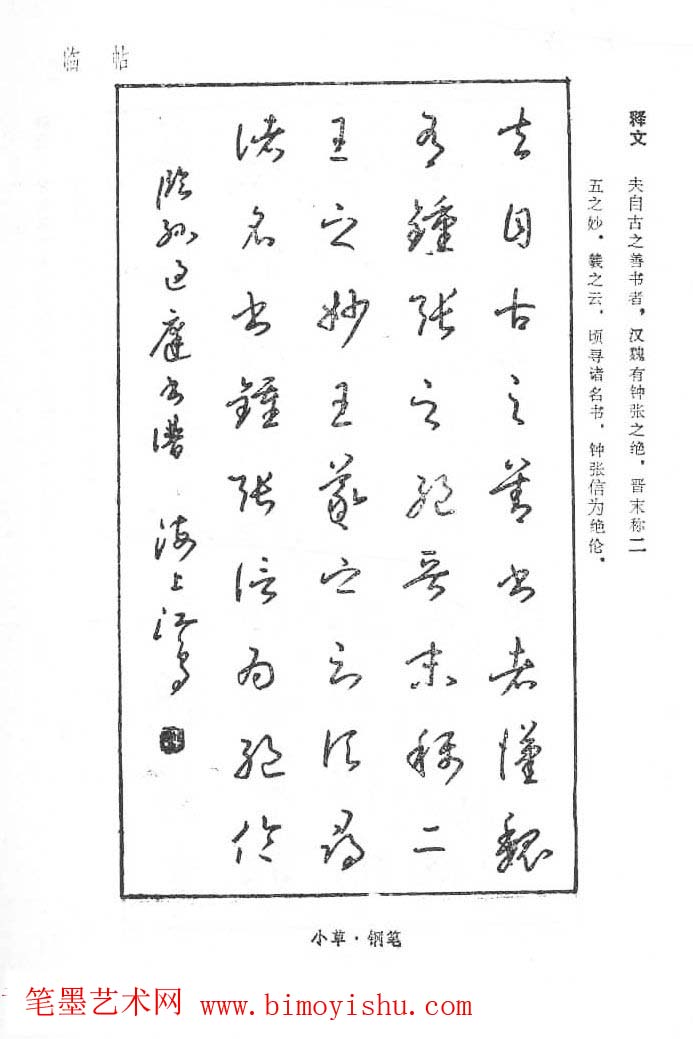 临帖
释文 夫自古之善书者，汉魏有钟张之绝，晋末称二
五之妙．羲之云．顷寻诸名书．钟张信为绝伦．
夫自古之善书者漢魏
有鍾張之絕晉末称二
王之妙王羲之云頃尋
诸名书鍾張信为絕伦
臨孫过庭书谱 海上江
小草·钢笔
笔墨艺术网 www.bimoyishu.com